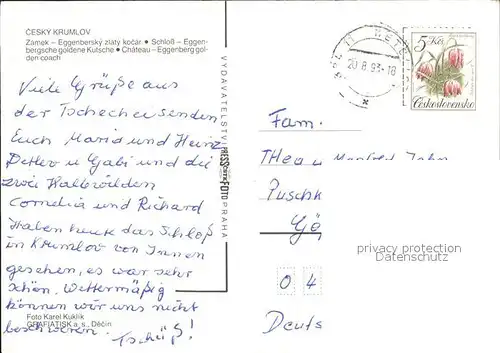 ČESKÝ KRUMLOV
Zámek – Eggenberský zlatý kočár • Schloß – Eggen-
bergsche goldene Kutsche • Château – Eggenberg gol-
den coach
Viele Grüße aus
der Tschechei senden
Euch Maria und Heinz
Detlev u Gabi und die
zwei Halbwilden
Cornelia und Richard
Haben heute das Schloß
in Krumlov von Innen
gesehen, es war sehr
schön. Wettermäßig
können wir uns nicht
beschweren.
Tschüß!
Foto Karel Kuklík
GRAFIATISK a. s., Děčín
VYDAVATELSTVÍ
PRESSFOTO
PRAHA
20.8.93-18
5 Kčs
Československo
Fam.
Thea u Manfred
Puschk
Gö
privacy protection
Datenschutz
0 4
Deuts